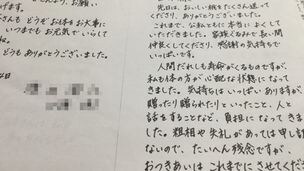 先日は、おいしい桃をたくさん送って
くださり、ありがとうございました。
これまで、公私ともに本当によくして
いただきました。家族ぐるみで長い間
仲良くしてくださり、感謝の気持ちで
いっぱいです。
人間だれしも寿命がくるものですが、
私も体の方が心配な状態になって
きました。気持ちはいっぱいありますが、
贈ったり贈られたりといったこと、人と
話をすることなど、負担になってきま
した。粗相や失礼があっては申し訳
ないので、たいへん残念ですが、
おつきあいは これまでにさせてくださ
お願い
げます。
さん どうも お体をお大事に
いつまでも お元気で いらして
ね。
どうも ありがとうございました。
4日